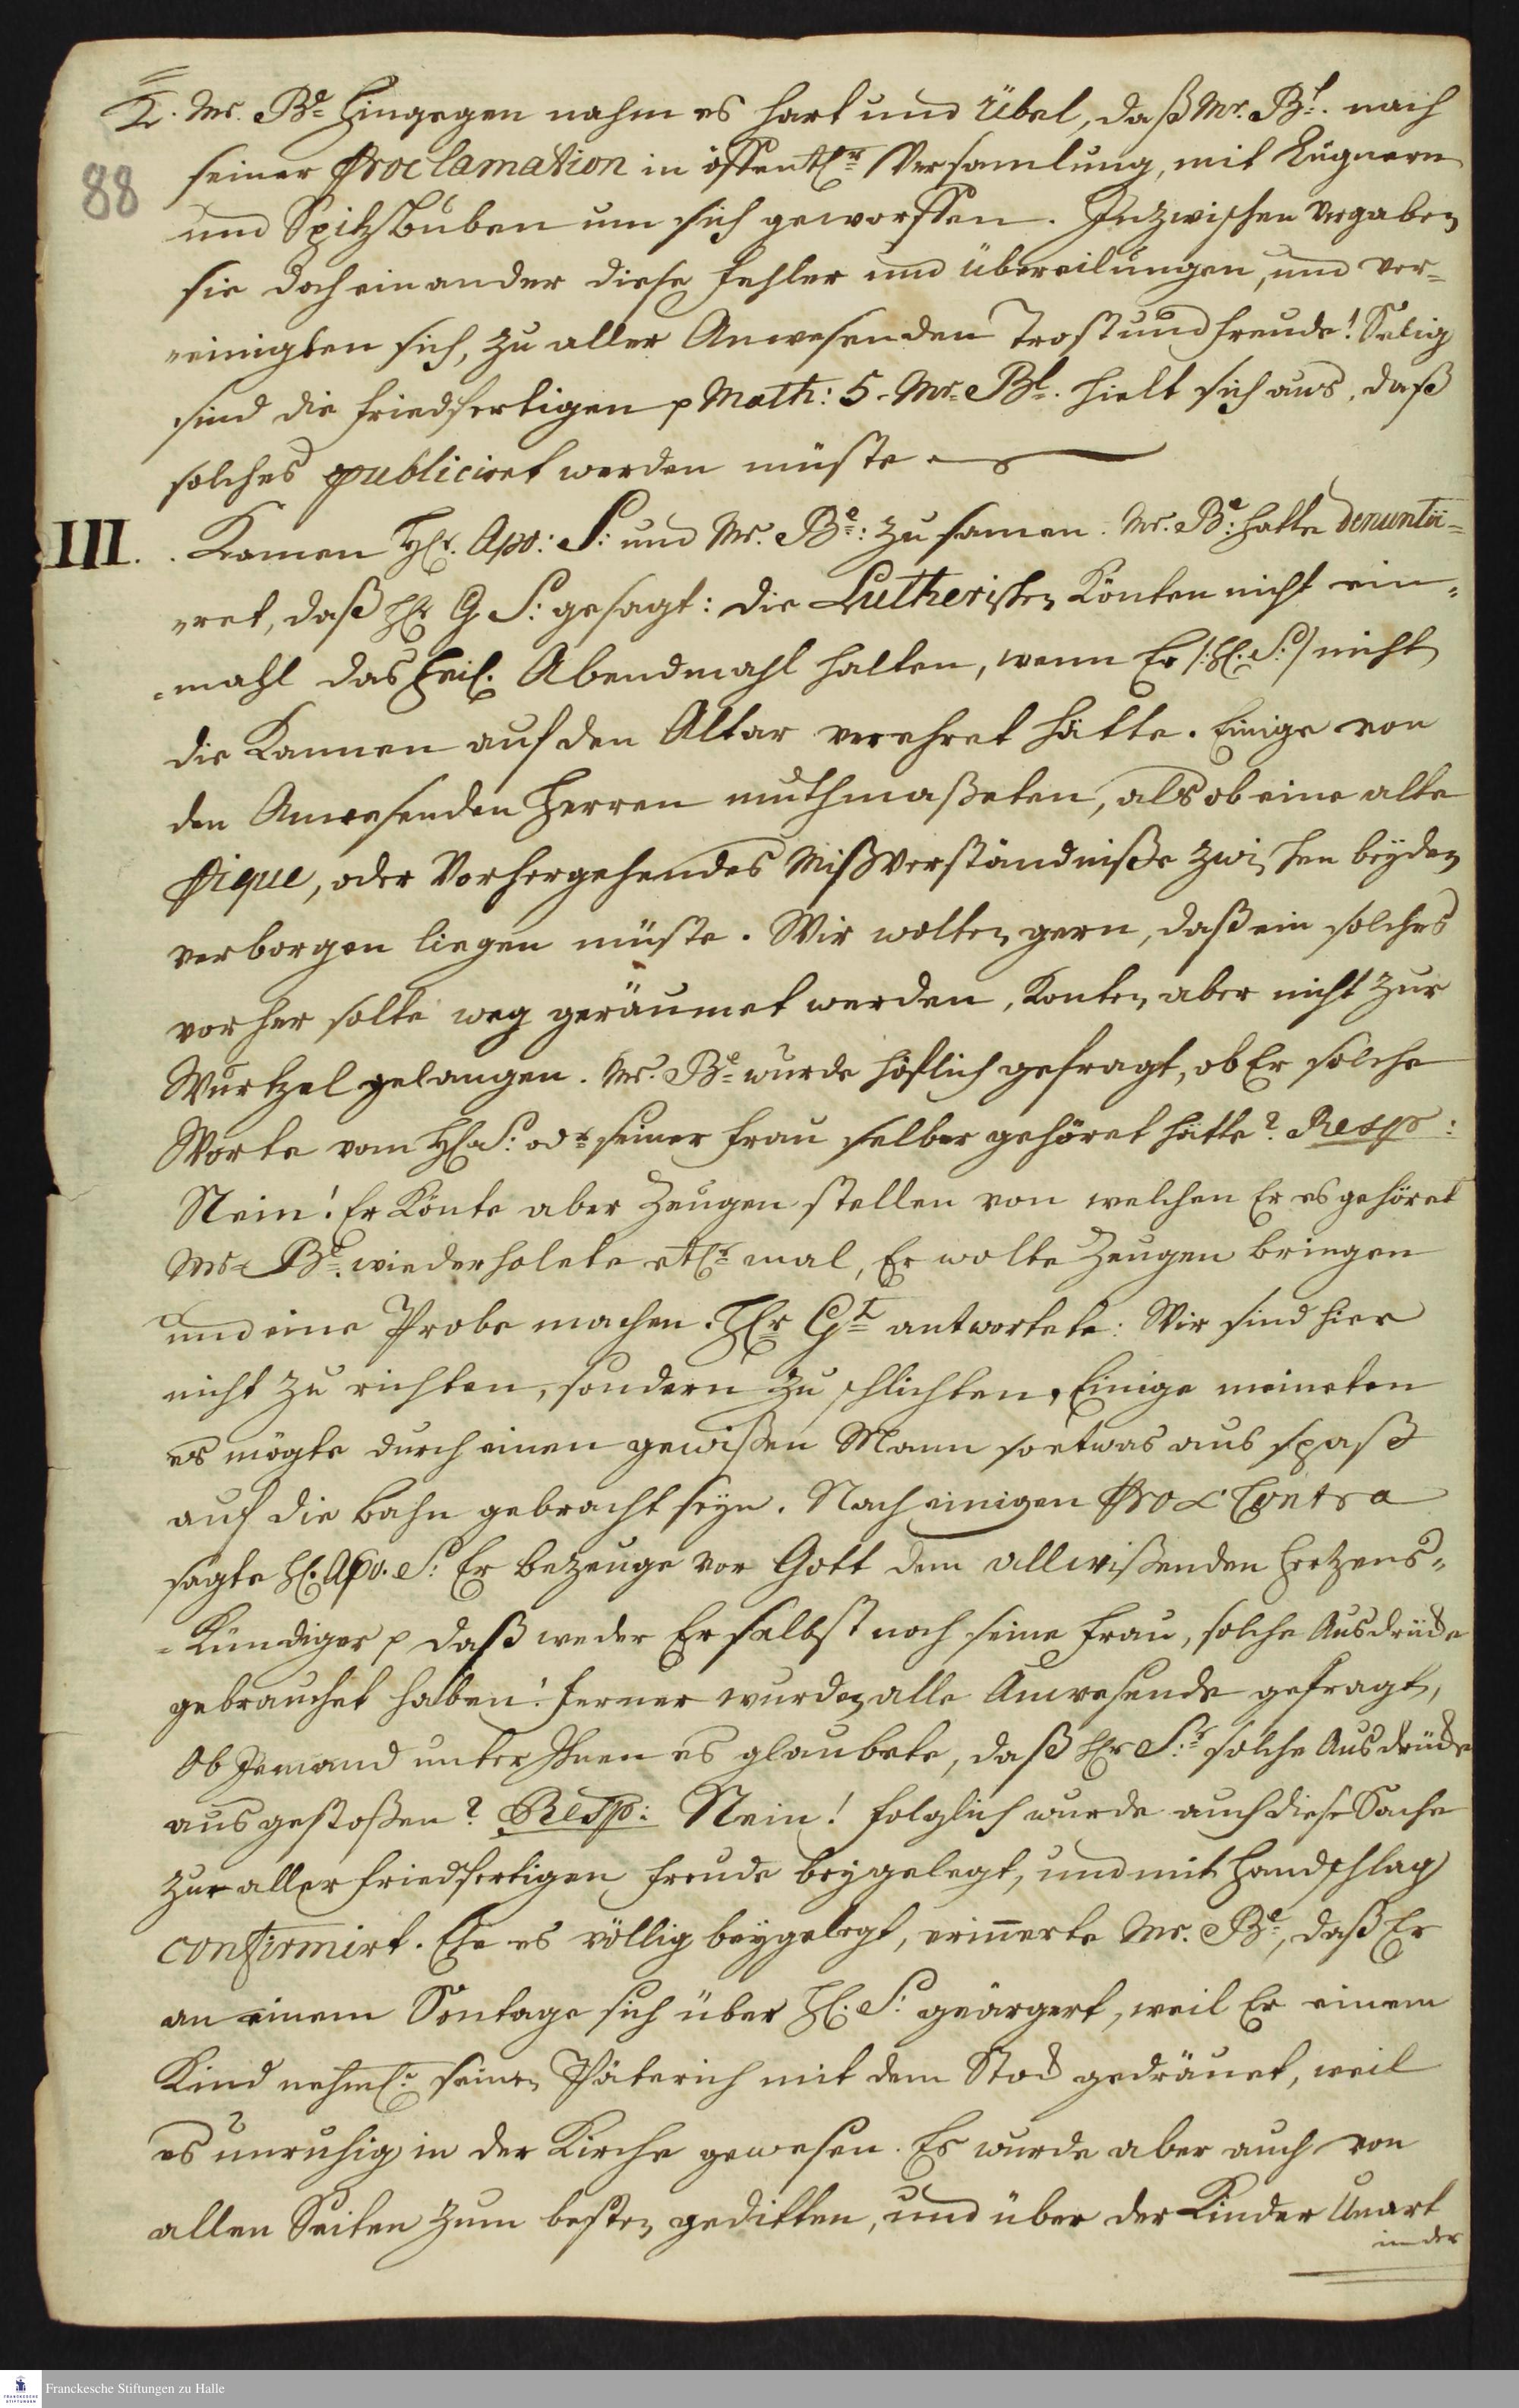 2. Mr. Be hingegen nahm es hart und Übel, daß Mr. Bl. nach
88
seiner Proclamation in öffentlr Versamlung, mit Lügnern
und Spitzbuben um sich geworffen. Inzwischen vergaben
sie doch einander diese fehler und übereilungen, und ver-
einigten sich, zu aller Anwesenden Trost und freude! Selig
sind die friedfertigen p Math: 5. Mr. Bl. hielt sich aus, daß
solches publiciret werden müste.
III. Kamen Hr. Apo: S: und Mr. Be: zusamen. Mr. Be: hatte denuntii-
ret, daß Hr G S: gesagt: die Lutherischen Könten nicht ein-
mahl das heil. Abendmahl halten, wenn Er /:H. S:/ nicht
die Kannen auf den Altar verehret hätte. Einige von
den Anwesenden Herren muthmaßeten, als ob eine alte
Pique, oder Vorhergehendes Mißverständniße zwischen beyden
verborgen liegen müste. Wir wolten gern, daß ein solches
vorher solte weg geräumet werden, konten aber nicht zur
Wurtzel gelangen. Mr. Be wurde höflich gefragt, ob Er solche
Worte vom H S: odr seiner frau selber gehöret hätte? Resp:
Nein! Er Könte aber Zeugen stellen von welchen Er es gehöret
Mr Be. wiederholete etl mal, Er wolte Zeugen bringen
und eine Probe machen. Hr Gt antwortete: Wir sind hier
nicht zu richten, sondern zu schlichten. Einige meineten
es mögte durch einen gewißen Mann so etwas aus spaß
auf die bahn gebracht seyn. Nach einigen Pro & Contra
sagte H. Apo. S: Er bezeuge vor Gott dem allwißenden Hertzens-
-Kündiger p daß weder Er selbst noch seine frau, solche Ausdrücke
gebrauchet haben! ferner wurden alle Anwesende gefragt,
Ob Jemand unter Ihnen es glaubete, daß Hr S:r solche Ausdrücke
ausgestoßen? Resp: Nein! folglich wurde auch diese Sache
zur aller friedfertigen freude beygelegt, und mit Handschlag
confirmirt. Ehe es völlig beygelegt, erinnerte Mr. Be, daß Er
an einem Sontage sich über H. S: geärgert, weil Er einem
Kind nehml: seinen Päterich mit dem Stock gedräuet, weil
es unruhig in der Kirche gewesen. Es wurde aber auch von
allen Seiten zum besten geditten, und über der Kinder Unart
in der
Franckesche Stiftungen zu Halle